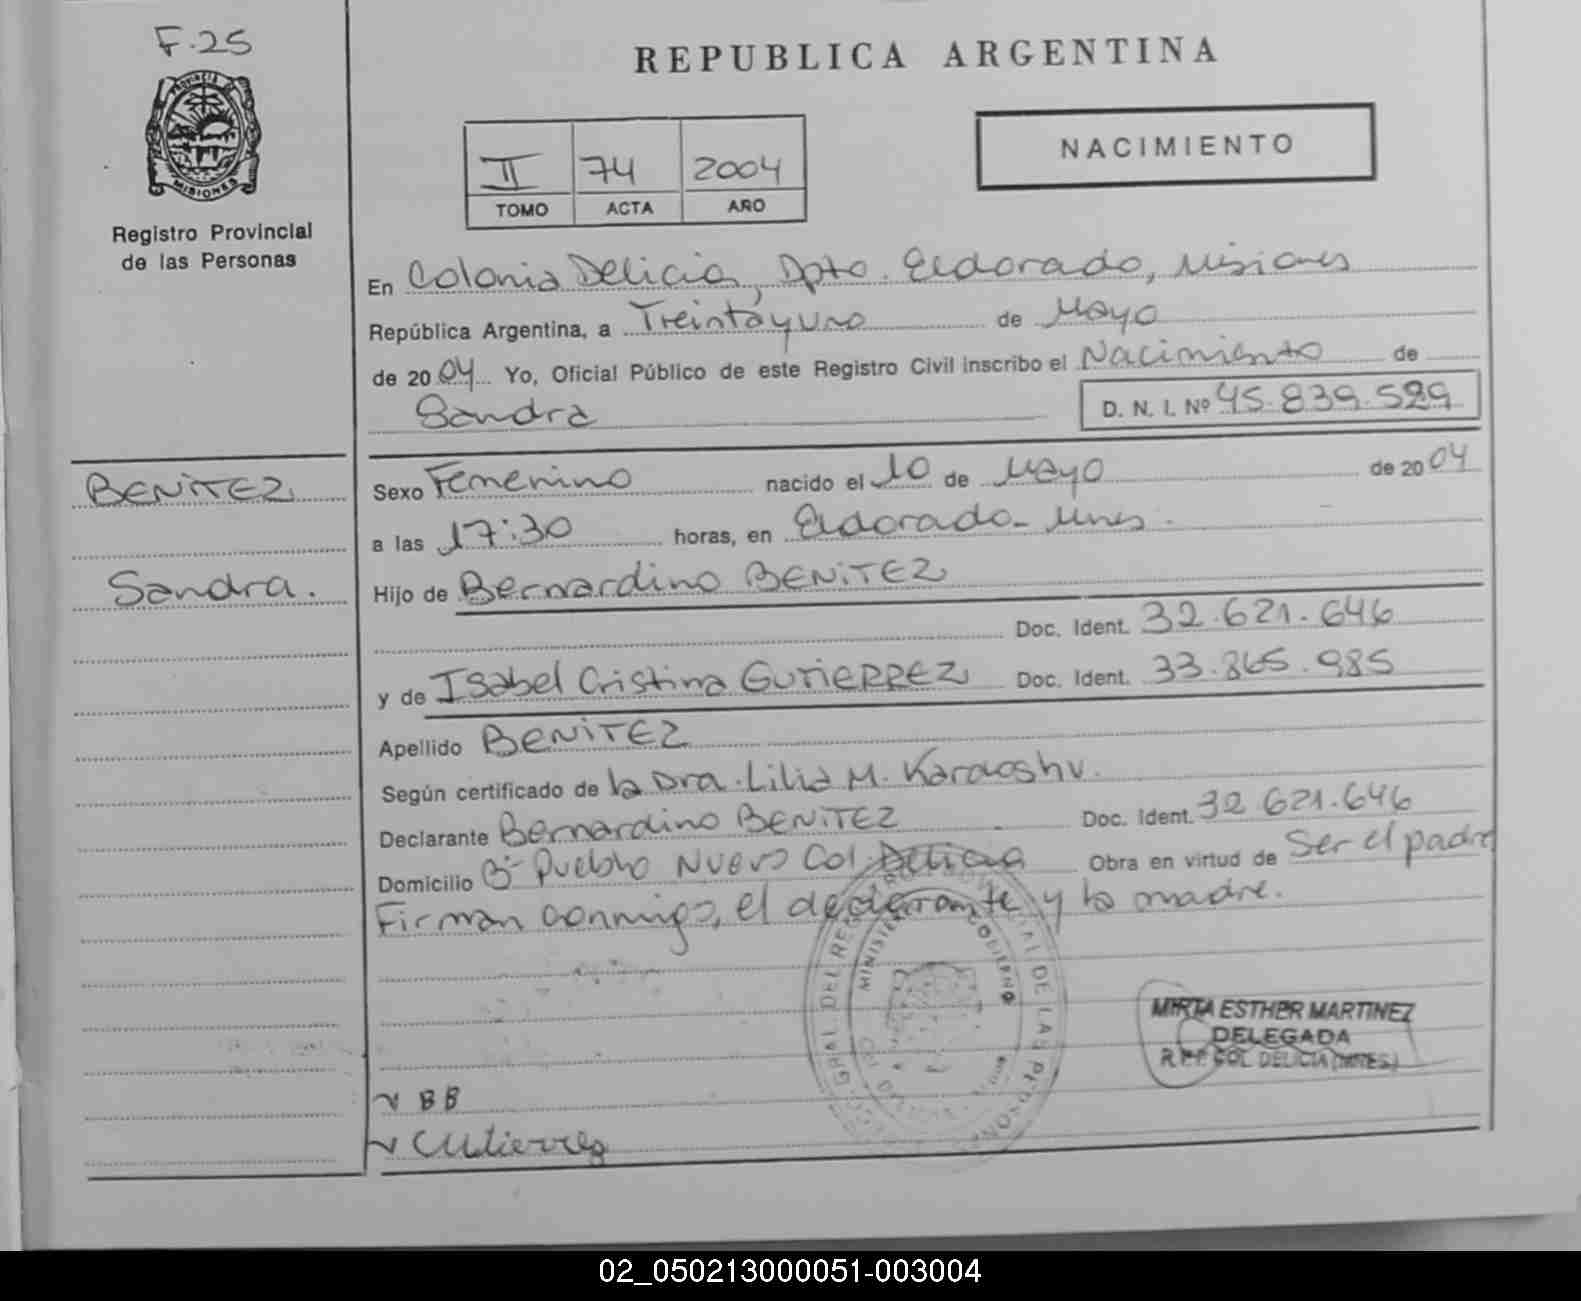 F.25
PROVINCIA DE
MISIONES
Registro Provincial
de las Personas
REPUBLICA ARGENTINA
II 74 2004
TOMO ACTA AÑO
NACIMIENTO
En Colonia Delicia, Dpto. Eldorado, Misiones
República Argentina, a Treintayuno de Mayo
de 2004 Yo, Oficial Público de este Registro Civil inscribo el Nacimiento de
Sandra D. N. I. Nº 45.839.529
BENITEZ
Sandra.
Sexo Femenino nacido el 10 de Mayo de 2004
a las 17:30 horas, en Eldorado- Mnes.
Hijo de Bernardino BENITEZ
Doc. Ident. 32.621.646
y de Isabel Cristina GUTIERREZ Doc. Ident. 33.865.985
Apellido BENITEZ
Según certificado de la Dra. Lilia M.
Declarante Bernardino BENITEZ Doc. Ident. 32 621.646
Domicilio Bº Pueblo Nuevo Col. Delicia Obra en virtud de Ser el padre
Firman conmigo, el declarante y la madre.
GRAL DEL REG
DE LAS PERSONAS
MINISTERIO GOBIERNO
MIRTA ESTHER MARTINEZ
DELEGADA
R.P.P. COL DELICIA (MNES)
BB
Gutierrez
02_050213000051-003004